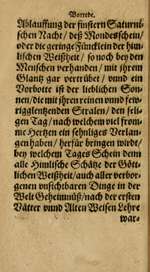 Vorrede.
Ablauffung der finstern Saturni-
schen Nacht / deß Mondesschein /
oder die geringe Füncklein der him-
lischen Weißheit / so noch bey den
Menschen verhanden / mit jhrem
Glantz gar vertrübet / vnnd ein
Vorbotte ist der lieblichen Son-
nen / die mit jhren reinen vnnd few-
rigglentzenden Stralen / den seli-
gen Tag / nach welchem viel from-
me Hertzen ein sehnliges Verlan-
gen haben / herfür bringen wirdt /
bey welchem Tages Schein denn
alle Himlische Schätze der Gött-
lichen Weißheit / auch aller verbor-
genen vnsichtbaren Dinge in der
Welt Geheimnüß / nach der ersten
Vätter vnnd Alten Weisen Lehre
war-